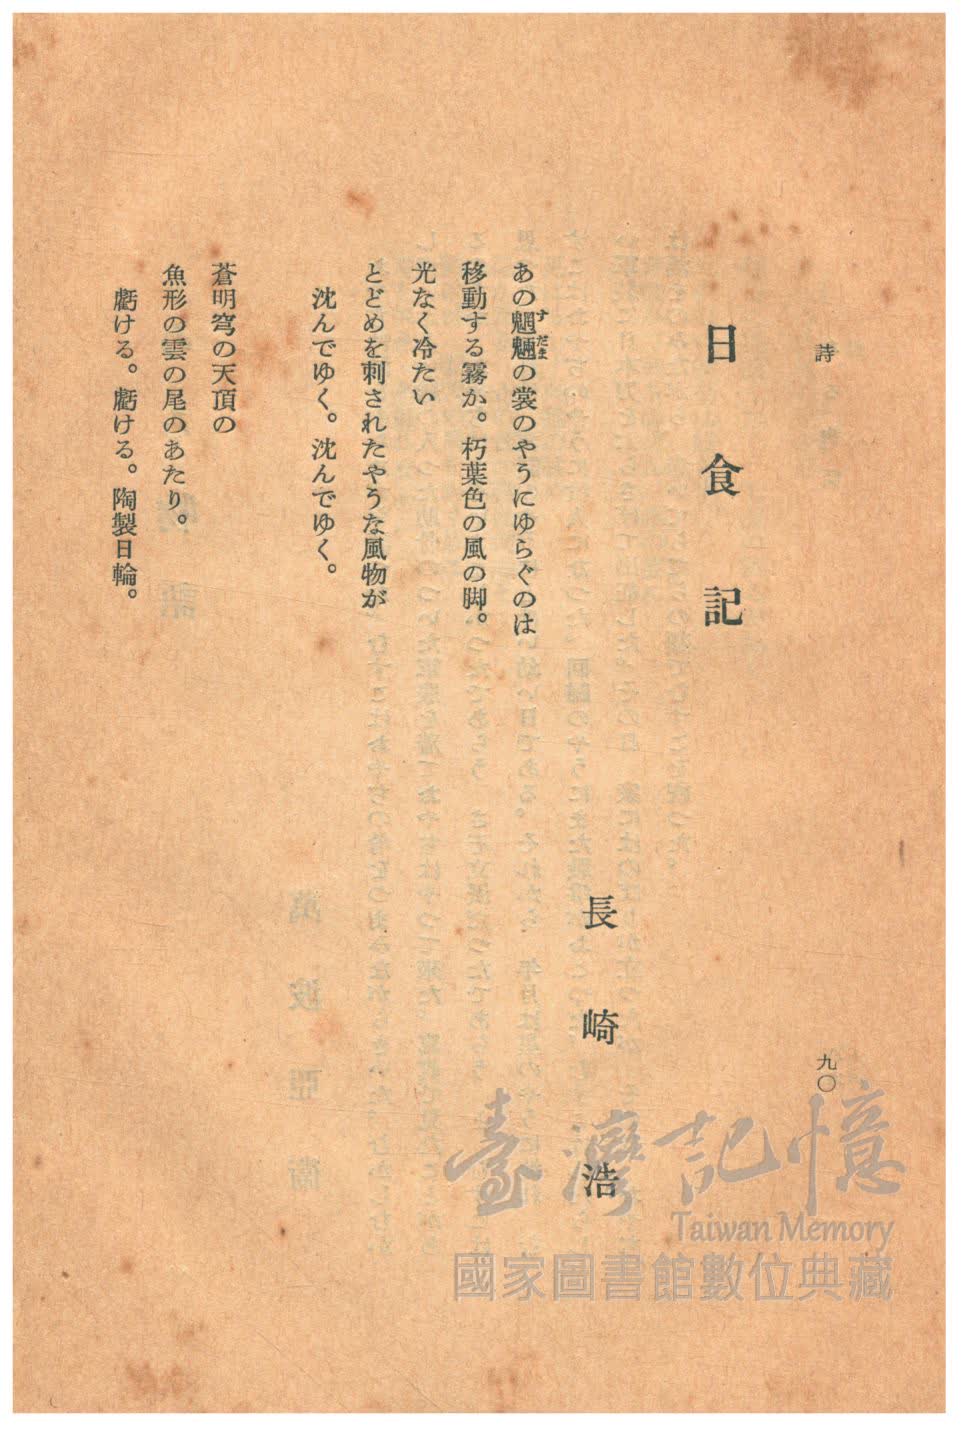 詩
九〇
日食記
長崎浩
あの魍魎の裳のやうにゆらぐのは
すだま
移動する霧か。朽葉色の風の脚。
光なく冷たい
とどめを刺されたやうな風物が
沈んでゆく。沈んでゆく。
蒼明穹の天頂の
魚形の雲の尾のあたり。
虧ける。虧ける。陶製日輪。
臺灣記憶
Taiwan Memory
國家圖書館數位典藏